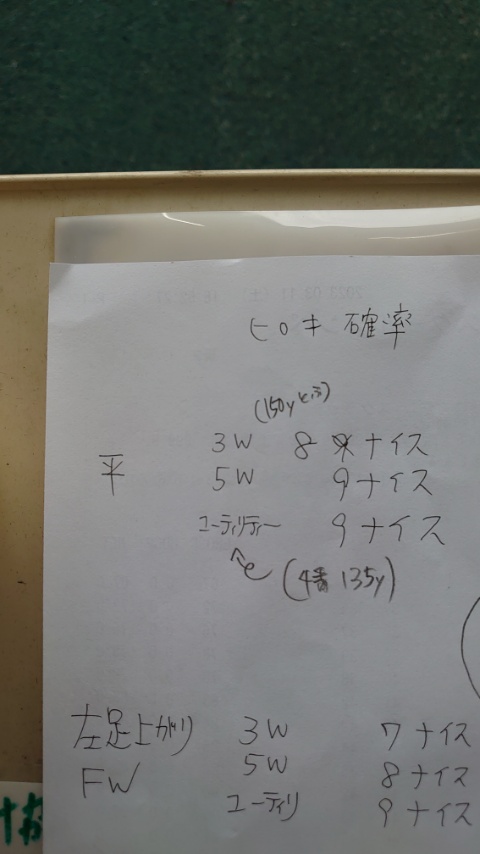 ヒロキ 確率
(150yとぶ)
平 3W 8ナイス
5W 9ナイス
ユーティリティー 9ナイス
(4番 135y)
左足上がり 3W 7ナイス
FW 5W 8ナイス
ユーティリ 9ナイス